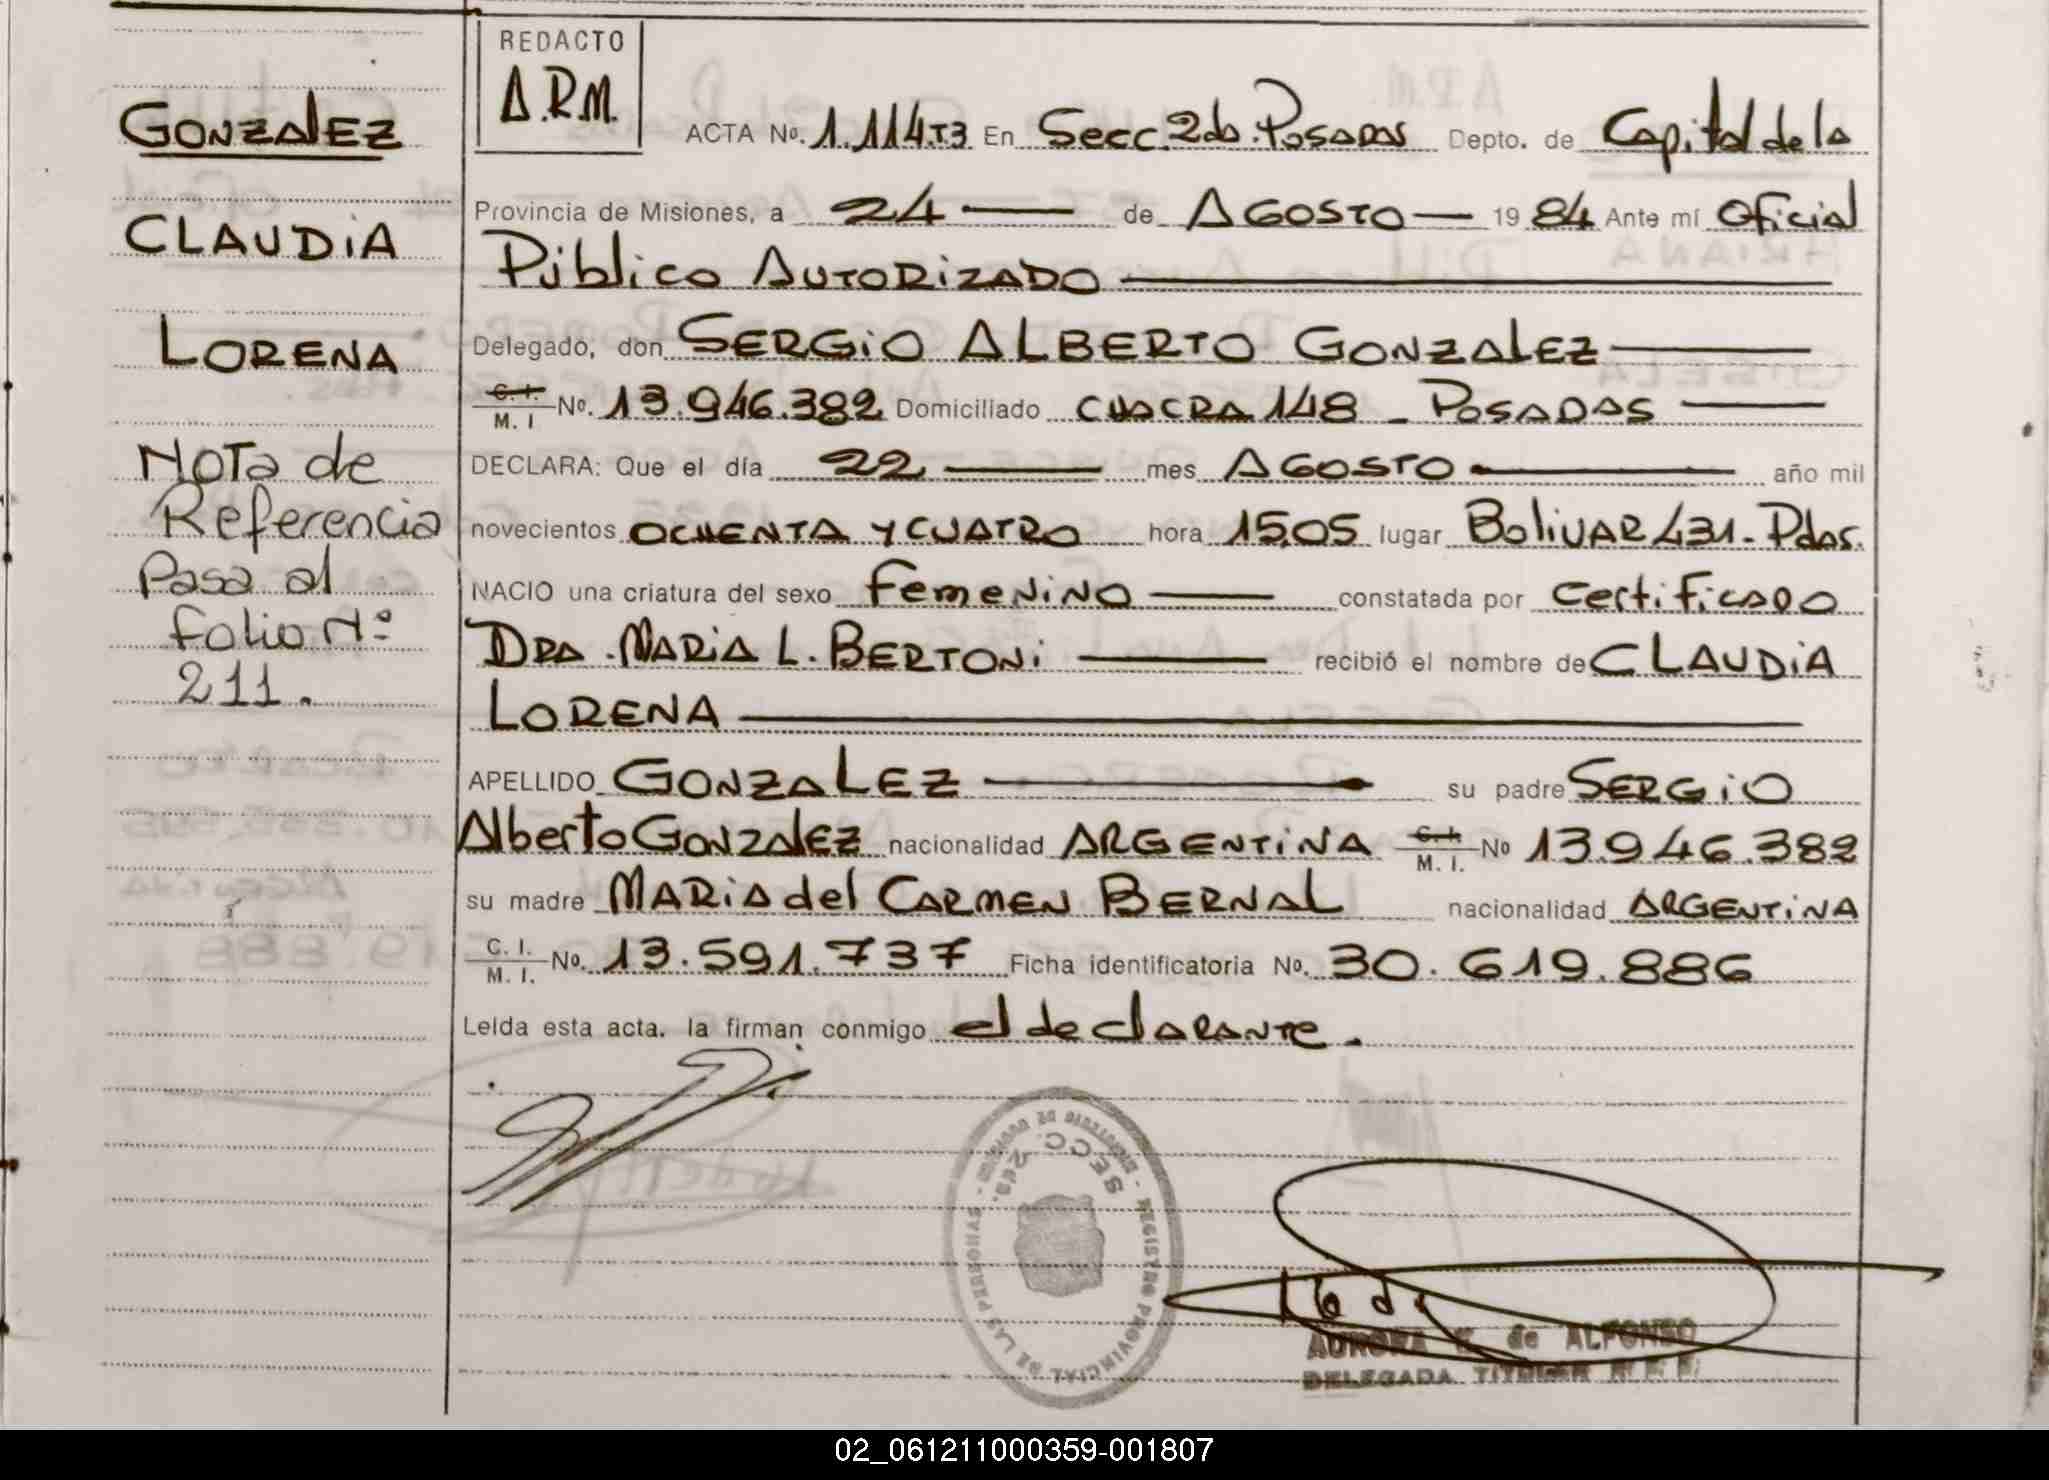 REDACTO
A.R.M.
ACTA No. 1.114.T3 En Secc. 2da. Posadas Depto. de Capital de la
Provincia de Misiones, a 24 de AGOSTO 1984 Ante mí Oficial
Público AUTORIZADO
Delegado, don SERGIO ALBERTO GONZALEZ
C. I.
M. I No. 13.946.382 Domiciliado CHACRA 148 - POSADAS
DECLARA: Que el día 22 mes AGOSTO año mil
novecientos OCHENTA Y CUATRO hora 15,05 lugar Bolivar 431 - Pdas.
NACIO una criatura del sexo Femenino constatada por Certificado
DRA. MARIA L. BERTONI recibió el nombre de CLAUDIA
LORENA
APELLIDO GONZALEZ su padre SERGIO
Alberto GONZALEZ nacionalidad ARGENTINA C. I. M. I. No 13.946.382
su madre MARIA del CARMEN BERNAL nacionalidad ARGENTINA
C. I.
M. I. No. 13.591.737 Ficha identificatoria No. 30.619.886
Leída esta acta. la firman conmigo el declarante.
GONZALEZ
CLAUDIA
LORENA
NOTA de
Referencia
Pasa al
folio Nº
211.
REGISTRO PROVINCIAL DE LAS PERSONAS
SECC. 2da.
AURORA de ALFONSO
DELEGADA TITULAR
02_061211000359-001807